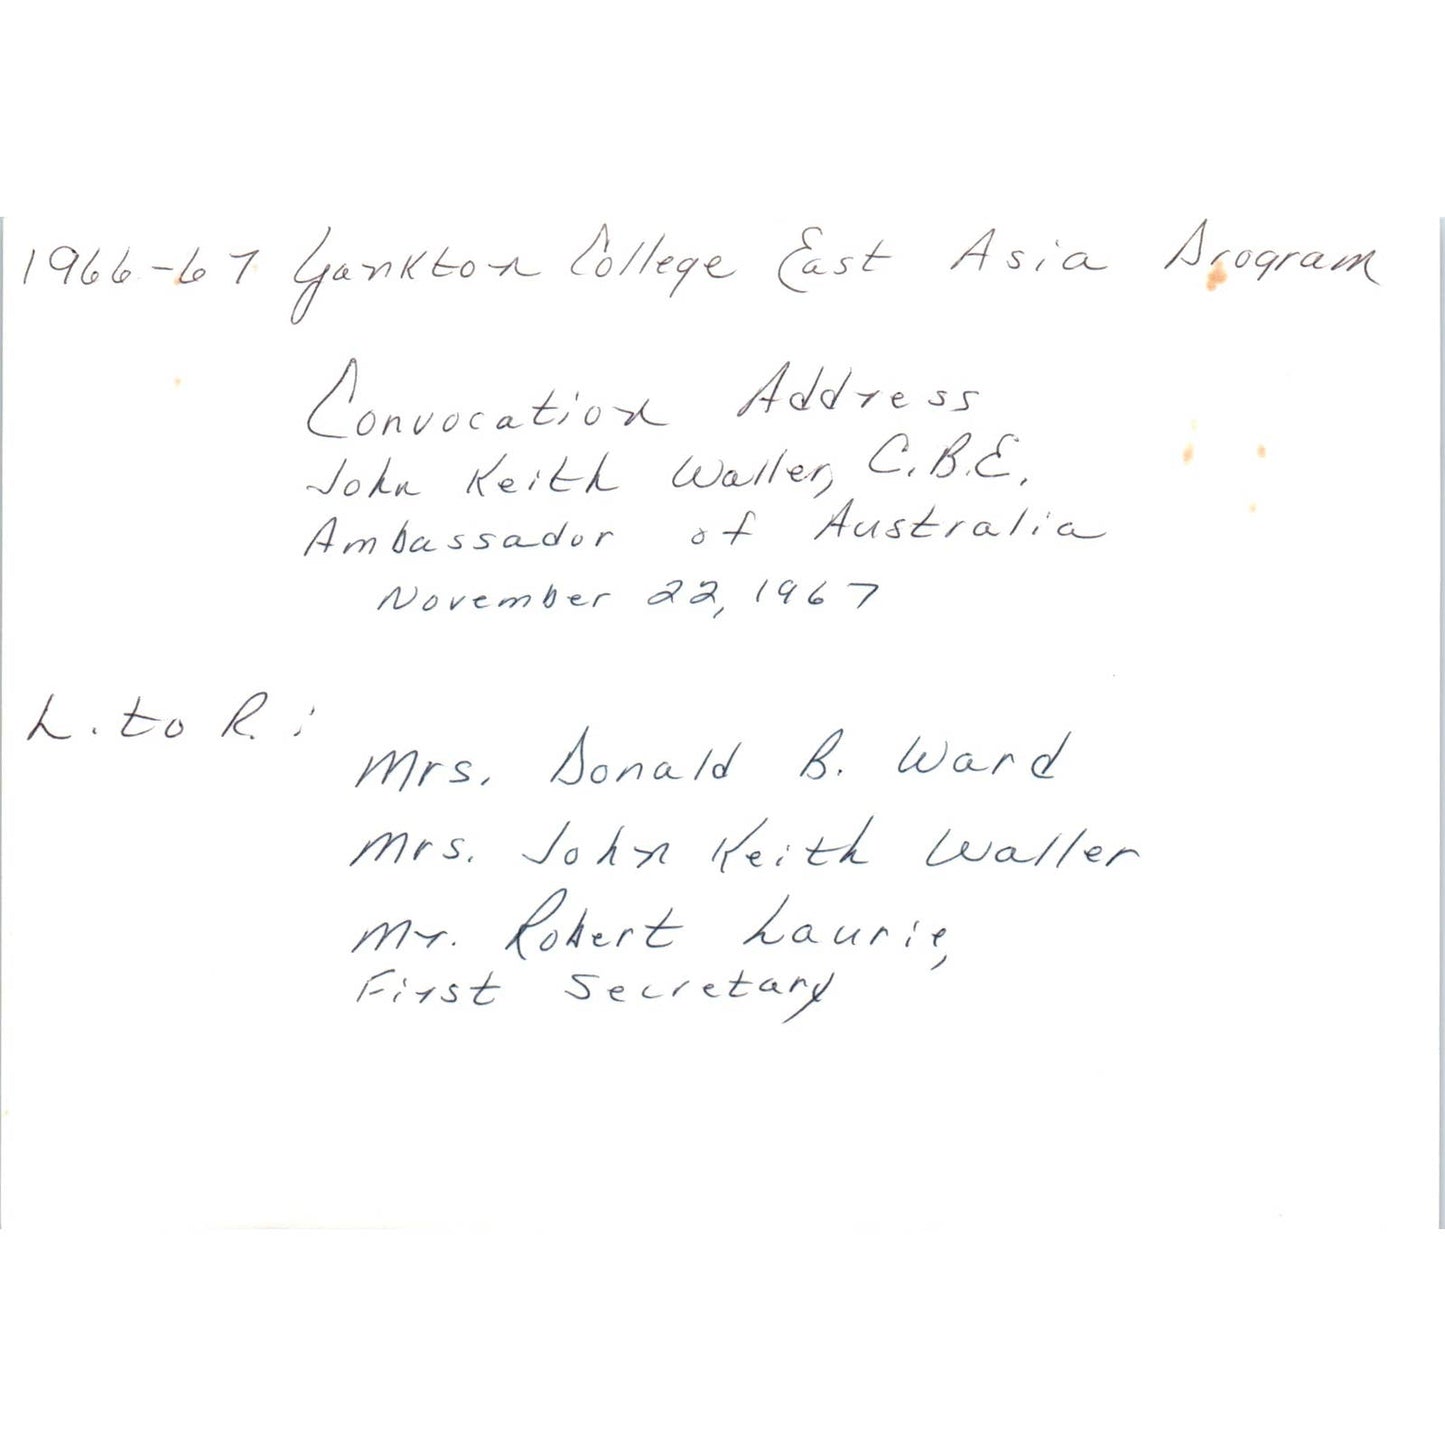 1966-67 Yankton College East Asia Program
Convocation Address
John Keith Waller, C.B.E.
Ambassador of Australia
November 22, 1967
L. to R.:
Mrs. Donald B. Ward
Mrs. John Keith Waller
Mr. Robert Laurie,
First Secretary